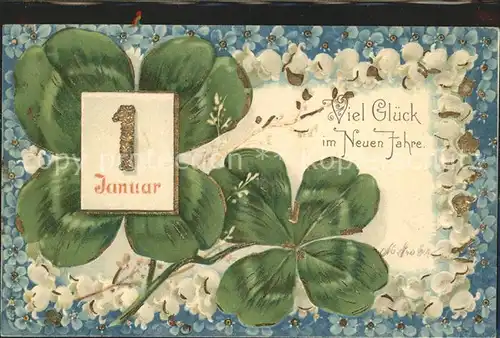 1
Januar
Viel Glück
im Neuen Jahre.